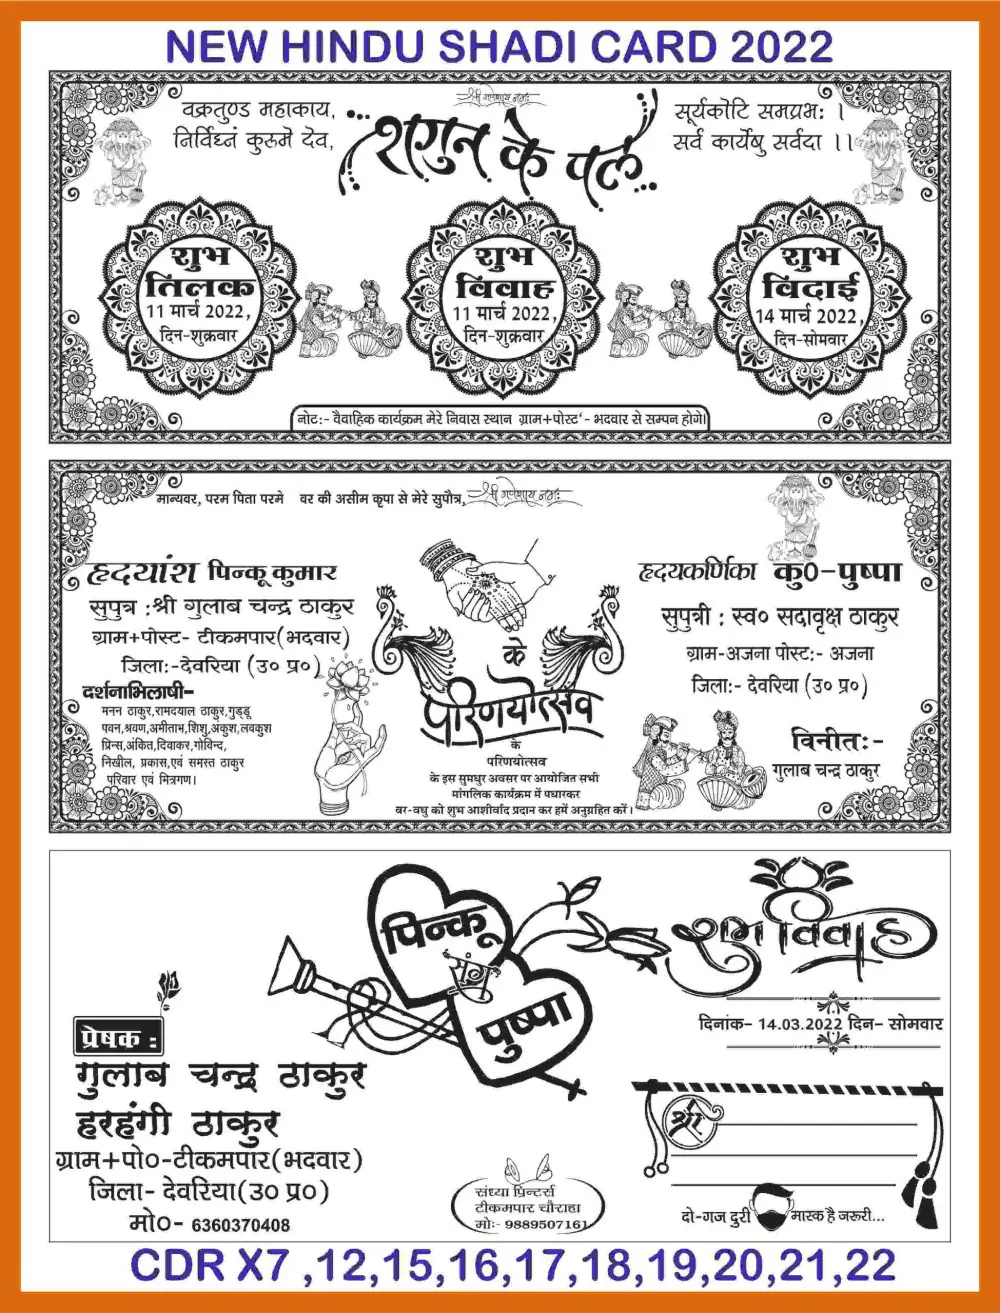 NEW HINDU SHADI CARD 2022
श्री गणेशाय नमः
वक्रतुण्ड महाकाय,
निर्विघ्नं कुरूमे देव,
शगुन के पल
सूर्यकोटि समप्रभः ।
सर्व कार्येषु सर्वदा ।।
शुभ
तिलक
11 मार्च 2022,
दिन-शुक्रवार
शुभ
विवाह
11 मार्च 2022,
दिन-शुक्रवार
शुभ
विदाई
14 मार्च 2022,
दिन-सोमवार
नोटः- वैवाहिक कार्यक्रम मेरे निवास स्थान ग्राम+पोस्ट‘- भदवार से सम्पन होगे।
मान्यवर, परम पिता परमे वर की असीम कृपा से मेरे सुपौत्र,
श्री गणेशाय नमः
हृदयांश पिन्कू कुमार
सुपुत्र :श्री गुलाब चन्द्र ठाकुर
ग्राम+पोस्ट- टीकमपार(भदवार)
जिलाः-देवरिया (उ० प्र०)
दर्शनाभिलाषी-
मनन ठाकुर,रामदयाल ठाकुर,गुड्डू
पवन,श्रवण,अमीताभ,शिशु,अंकुश,लवकुश
प्रिन्स,अंकित,दिवाकर,गोविन्द,
निखील, प्रकास,एवं समस्त ठाकुर
परिवार एवं मित्रगण।
के
परिणयोत्सव
के
परिणयोत्सव
के इस सुमधुर अवसर पर आयोजित सभी
मांगलिक कार्यक्रम में पधारकर
वर-वधु को शुभ आशीर्वाद प्रदान कर हमें अनुग्रहित करें।
हृदयकर्णिका कु०-पुष्पा
सुपुत्री : स्व० सदावृक्ष ठाकुर
ग्राम-अजना पोस्ट:- अजना
जिला:- देवरिया (उ० प्र०)
विनीतः-
गुलाब चन्द्र ठाकुर
पिन्कू
संग
पुष्पा
शुभ विवाह
दिनांक- 14.03.2022 दिन- सोमवार
प्रेषक :
गुलाब चन्द्र ठाकुर
हरहंगी ठाकुर
ग्राम+पो०-टीकमपार(भदवार)
जिला- देवरिया(उ० प्र०)
मो०- 6360370408
संध्या प्रिन्टर्स
टीकमपार चौराहा
मोः- 9889507161
श्री
दो-गज दुरी मास्क है जरूरी...
CDR X7 ,12,15,16,17,18,19,20,21,22